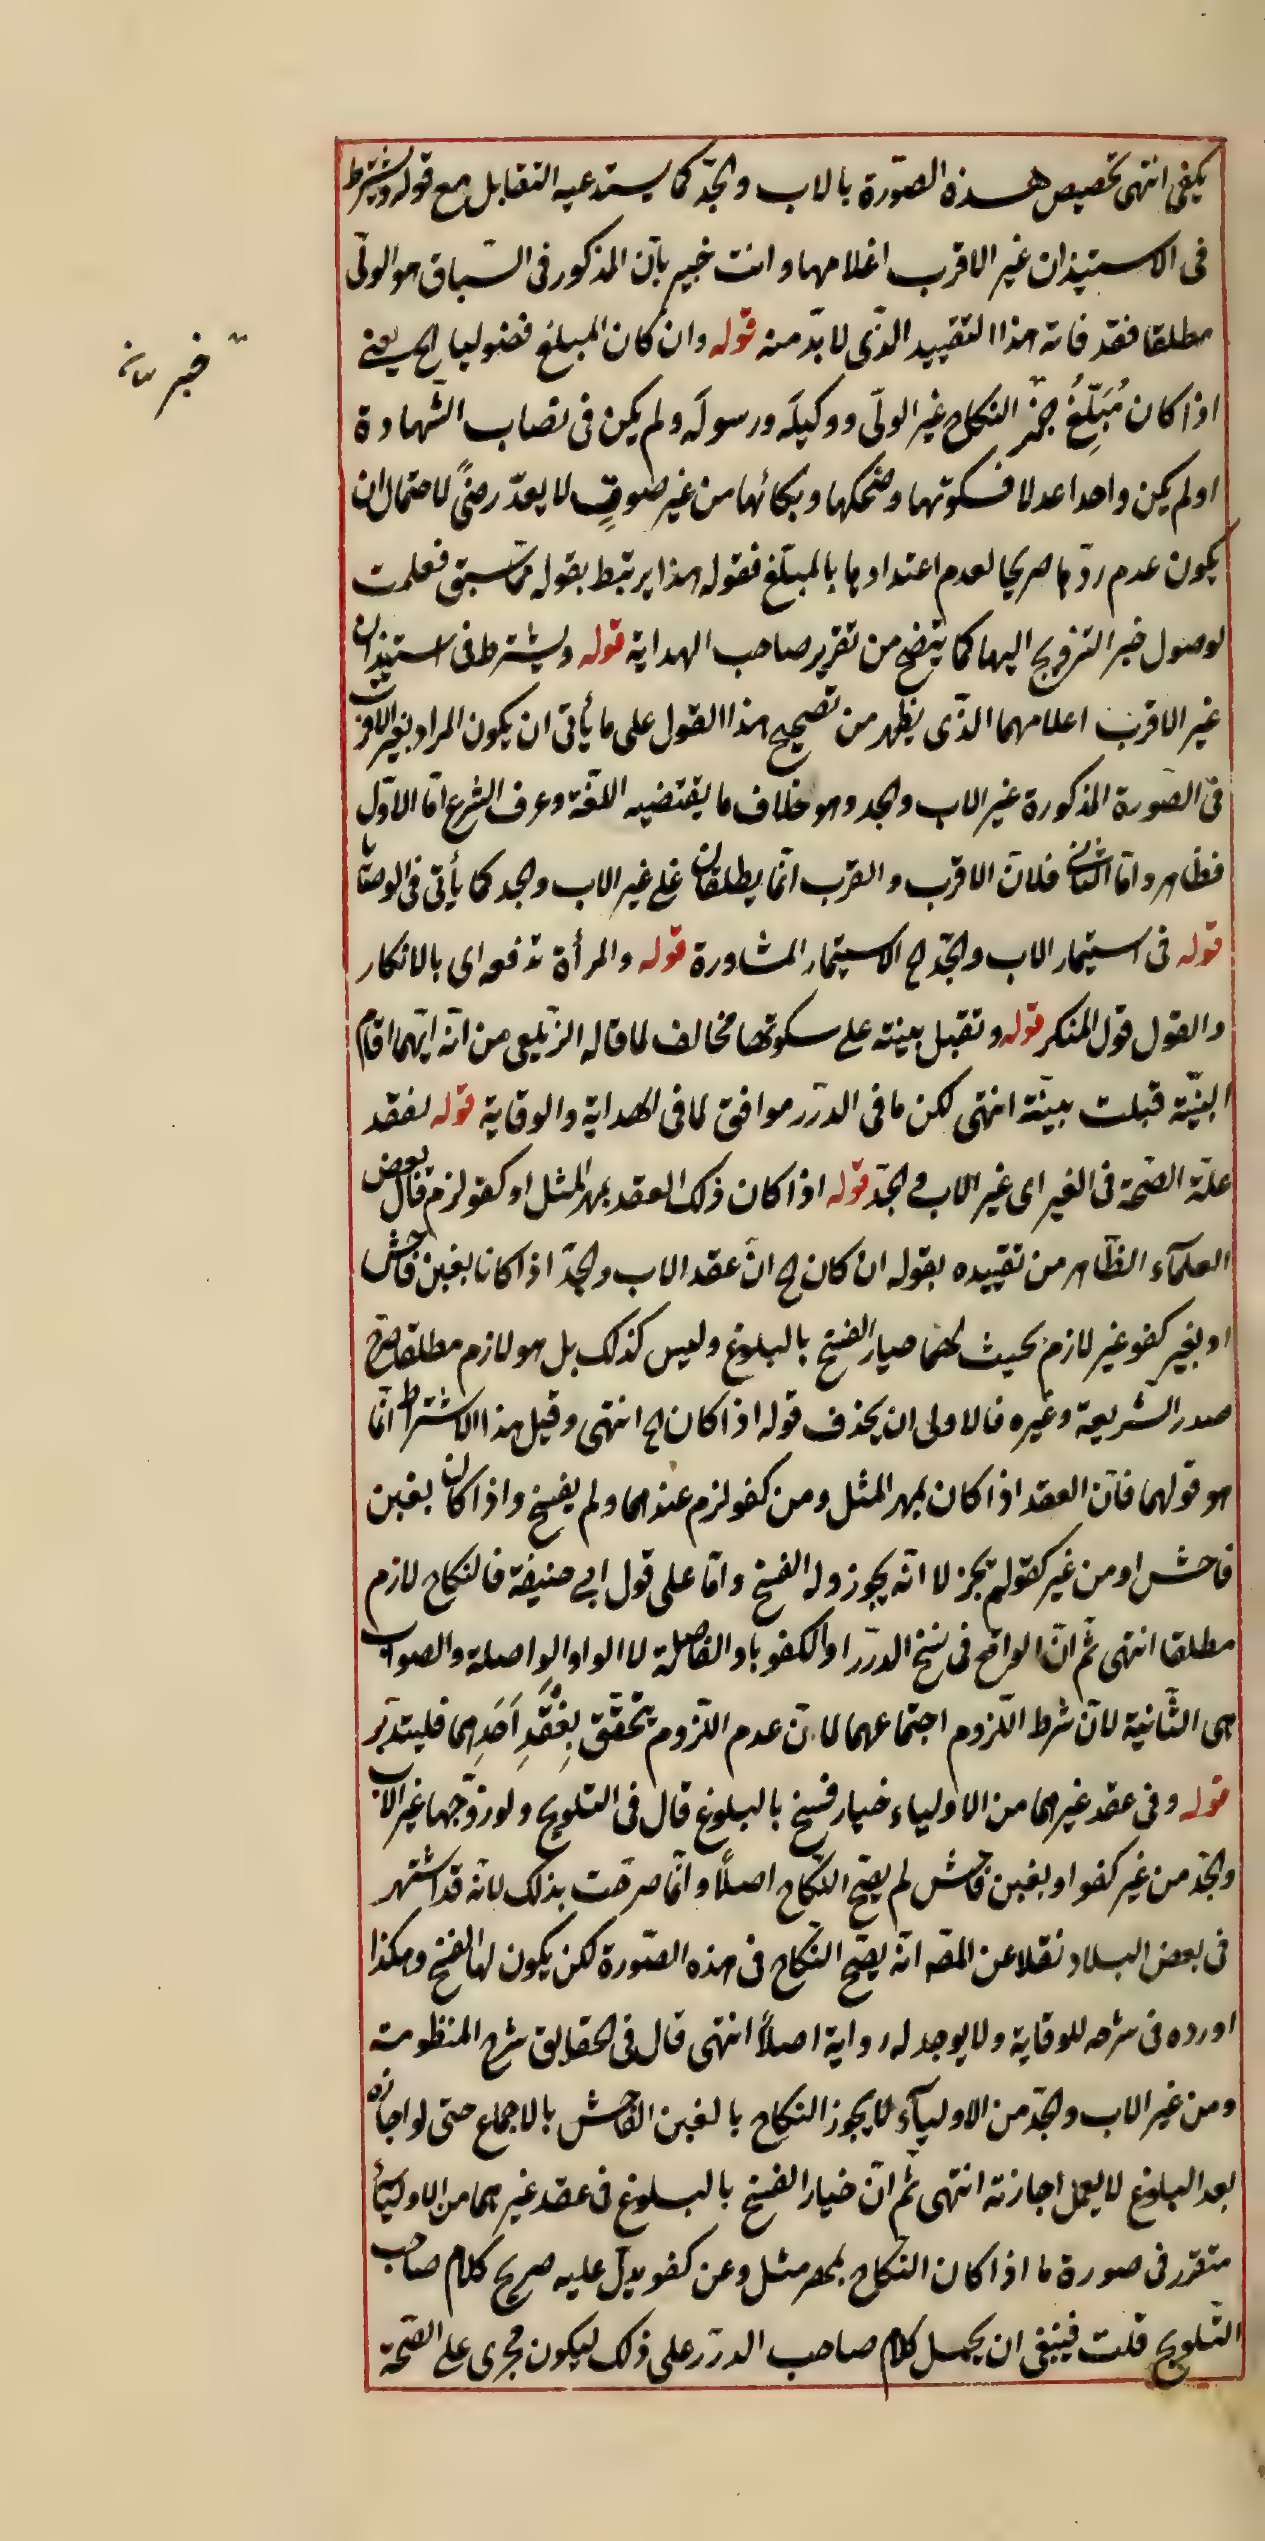 يكفى انتهى تخصيص هذه الصّورة بالاب والجدّ كما يستدعيه التقابل مع قوله ويشترط
فى الاستيذان غير الاقرب اعلامهما وانت خبير بانّ المذكور فى السّباق هو الولّى
مطلقا فقد فاته هذا التقييد الذّى لا بدّ منه قوله وان كان المبلغ فضوليا الخ يعنى
خبر
اذا كان مُبَلِّغُ خبر النكاح غير الولّى ووكيلَه ورسولَه ولم يكن فى نصاب الشّهادة
اولم يكن واحدا عدلا فسكوتها وضحكها وبكائها من غير صوتٍ لا يعدّ رضىً لاحتمال ان
يكون عدم ردّها صريحا لعدم اعتدادها بالمبلّغ فقوله هذا يرتبط بقوله ممّا سبق فعلمت
لوصول خبر التزويج اليها كما يتضح من تقرير صاحب الهداية قوله ويشترط فى استيذان
غير الاقرب اعلامهما الذّى يظهر من تصحيح هذا القول على ما يأتى ان يكون المراد بغير الاقرب
فى الصّورة المذكورة غير الاب والجد وهو خلاف ما يقتضيه اللّغة وعرف الشرع امّا الاوّل
فظاهر وامّا الثانى فلانّ الاقرب والقرب انّما يطلقان على غير الاب والجد كما يأتى فى الوصايا
قوله فى استيمار الاب والجّد الخ الاستيمار المشاورة قوله والمرأة تدفعه اى بالانكار
والقول قول المنكر قوله وتقبل بينته على سكوتها مخالف لما قاله الزّيلعى من انّه ايّهما اقام
البيّنة قبلت بينّته انتهى لكن ما فى الدرر موافق لما فى الهداية والوقاية قوله لفقد
علّة الصّحة فى الغير اى غير الاب والجّد قوله اذا كان ذلك العقد بمهر المثل او كفو لزم قال بعض
العلمآء الظّاهر من تقييده بقوله ان كان الخ انّ عقد الاب والجدّ اذا كانا بغبن فاحش
او بغير كفو غير لازم بحيث لهما خيار الفسخ بالبلوغ وليس كذلك بل هو لازم مطلقا صرّح
صدر الشريعة وغيره فالاولى ان يحذف قوله اذا كان الخ انتهى وقيل هذا الاشتراط انّما
هو قولهما فانّ العقد اذا كان بمهر المثل ومن كفو لزم عندهما ولم يفسخ واذا كان بغبن
فاحش او من غير كفو لم يجز لا انّه يجوز وله الفسخ وامّا على قول ابى حنيفة فالنكاح لازم
مطلقا انتهى ثم انّ الواقع فى نسخ الدرر او الكفو باو الفاصلة لا الواو الواصلة والصواب
هى الثّانية لانّ شرط اللّزوم اجتماعهما لانّ عدم اللّزوم يتحقّق بِفَقْدِ اَحَدِهما فليتدبّر
قوله وفى عقد غيرهما من الاولياء خيار فسخ بالبلوغ قال فى التلويح ولو زوّجها غير الاب
والجّد من غير كفو او بغبن فاحش لم يصحّ النّكاح اصلًا وانّما صرّحت بذلك لانّه قد اشتهر
فى بعض البلاد نقلا عن المصّ انّه يصّح النّكاح فى هذه الصّورة لكن يكون لها الفسخ وهكذا
اورده فى شرحه للوقاية ولا يوجد له رواية اصلًا انتهى قال فى الحقايق شرح المنظومة
ومن غير الاب والجّد من الاوليآء لا يجوز النكاح بالغبن الفاحش بالاجماع حتى لو اجازه
بعد البلوغ لا يعمل اجازته انتهى ثم انّ خيار الفسخ بالبلوغ فى عقد غيرهما من الاولياء
متقرر فى صورة ما اذا كان النّكاح بمهر مثل وعن كفو يدلّ عليه صريح كلام صاحب
التلويح قلت فينبغى ان يحمل كلام صاحب الدرر على ذلك ليكون مجرى على الصّحة